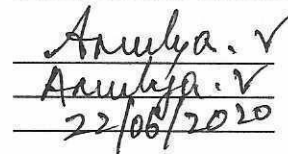 Amulya. V
Amulya. V
22/06/2020